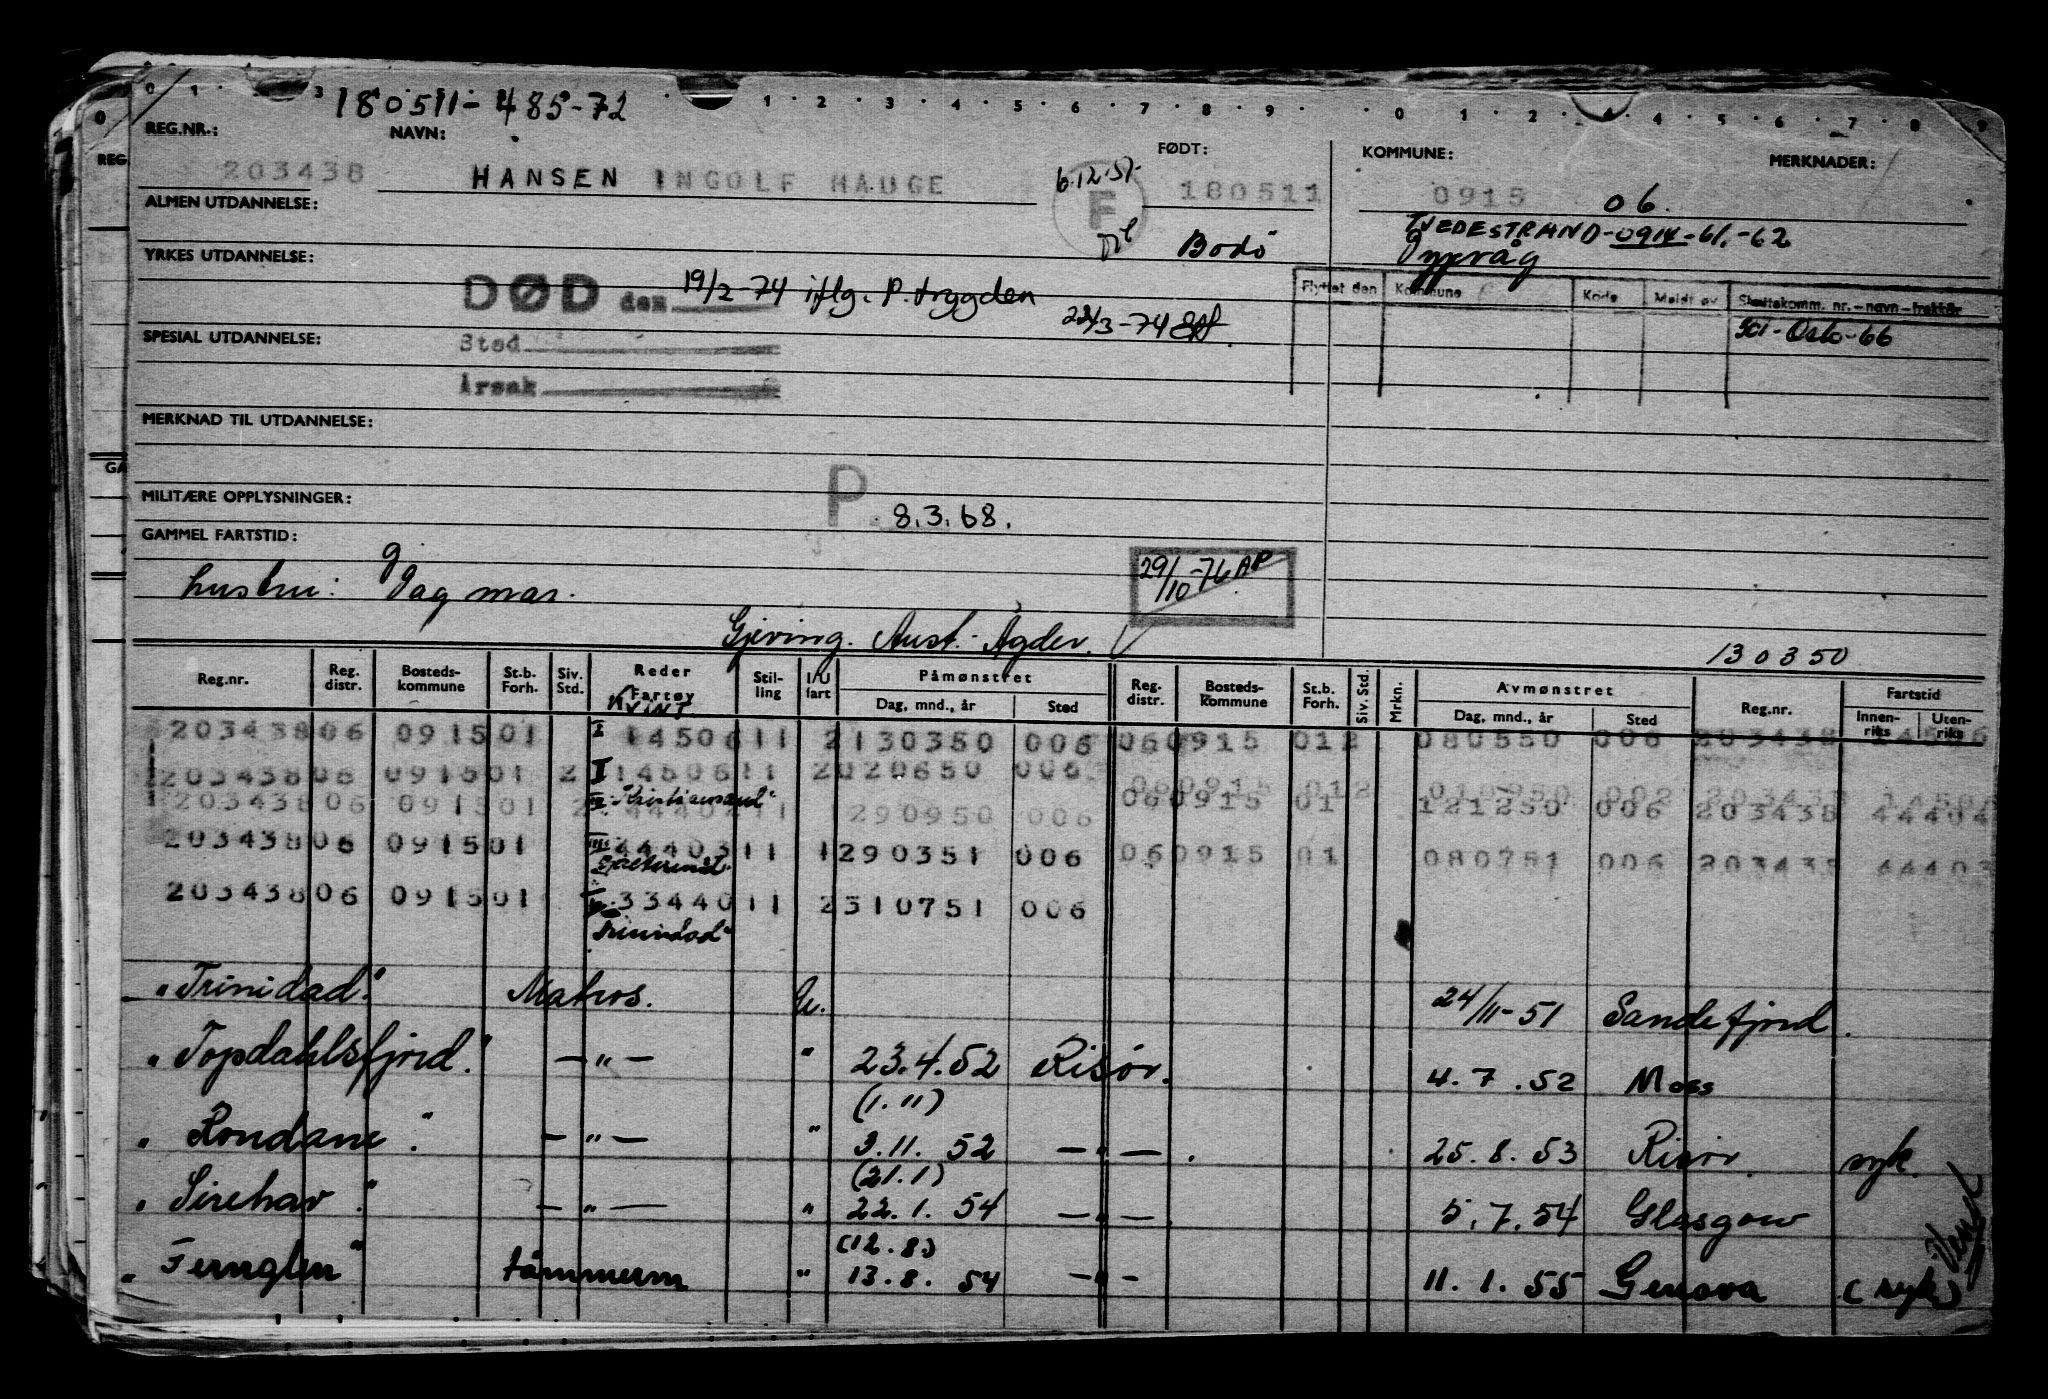 180511-485-72
REG.NR.: NAVN: FØDT: KOMMUNE: MERKNADER:
203438 HANSEN INGOLF HAUGE 6.12.51. F 180511 0915 06.
ALMEN UTDANNELSE:
TVEDESTRAND-0914-61.-62
Bodö
YRKES UTDANNELSE:
DØD den 19/2-74 iflg. P. trygden
22/3-74
Flyttet den Kommune Kode Meldt av Skattekomm. nr.-navn-trekkår
301-Oslo-66
SPESIAL UTDANNELSE:
Sted
Årsak
MERKNAD TIL UTDANNELSE:
MILITÆRE OPPLYSNINGER:
P. 8.3.68.
GAMMEL FARTSTID:
hustru: Dagmar.
29/10-76 AP
Gjeving. Aust-Agder.
130350
Reg.nr. Reg. distr. Bosteds-kommune St.b. Forh. Siv. Std. Reder Fartøy Stil-ling I/U fart Påmønstret Dag, mnd., år Sted Reg. distr. Bosteds-kommune St.b. Forh. Siv. Std. Mrkn. Avmønstret Dag, mnd., år Sted Reg.nr. Fartstid Innen-riks Uten-riks
203438 06 0915 01 I 14506 11 2 130350 006 06 0915 01 2 080550 006 203438 14506
203438 06 0915 01 2 II 14506 11 2 020650 006 06 0915 01 2 002 203438
203438 06 0915 01 2 "Kristiansand" 44404 11 290950 006 06 0915 01 121250 006 203438 44404
203438 06 0915 01 III 44403 11 1 290351 006 06 0915 01 080751 006 203438 44403
203438 06 0915 01 33440 11 2 310751 006
"Trinidad"
"Trinidad". Matros. U. 24/11-51 Sandefjord.
"Topdahlsfjord." — " — " 23.4.52 Risör. 4.7.52 Moss
(1.11)
"Rondane". — " — " 3.11.52 — " — . 25.8.53 Risör. syk.
(21.1)
"Sirehav". — " — " 22.1.54 — " — 5.7.54 Glasgow
(12.8)
"Fernglen" tömmerm " 13.8.54 — " — 11.1.55 Genova (syk)
Vend